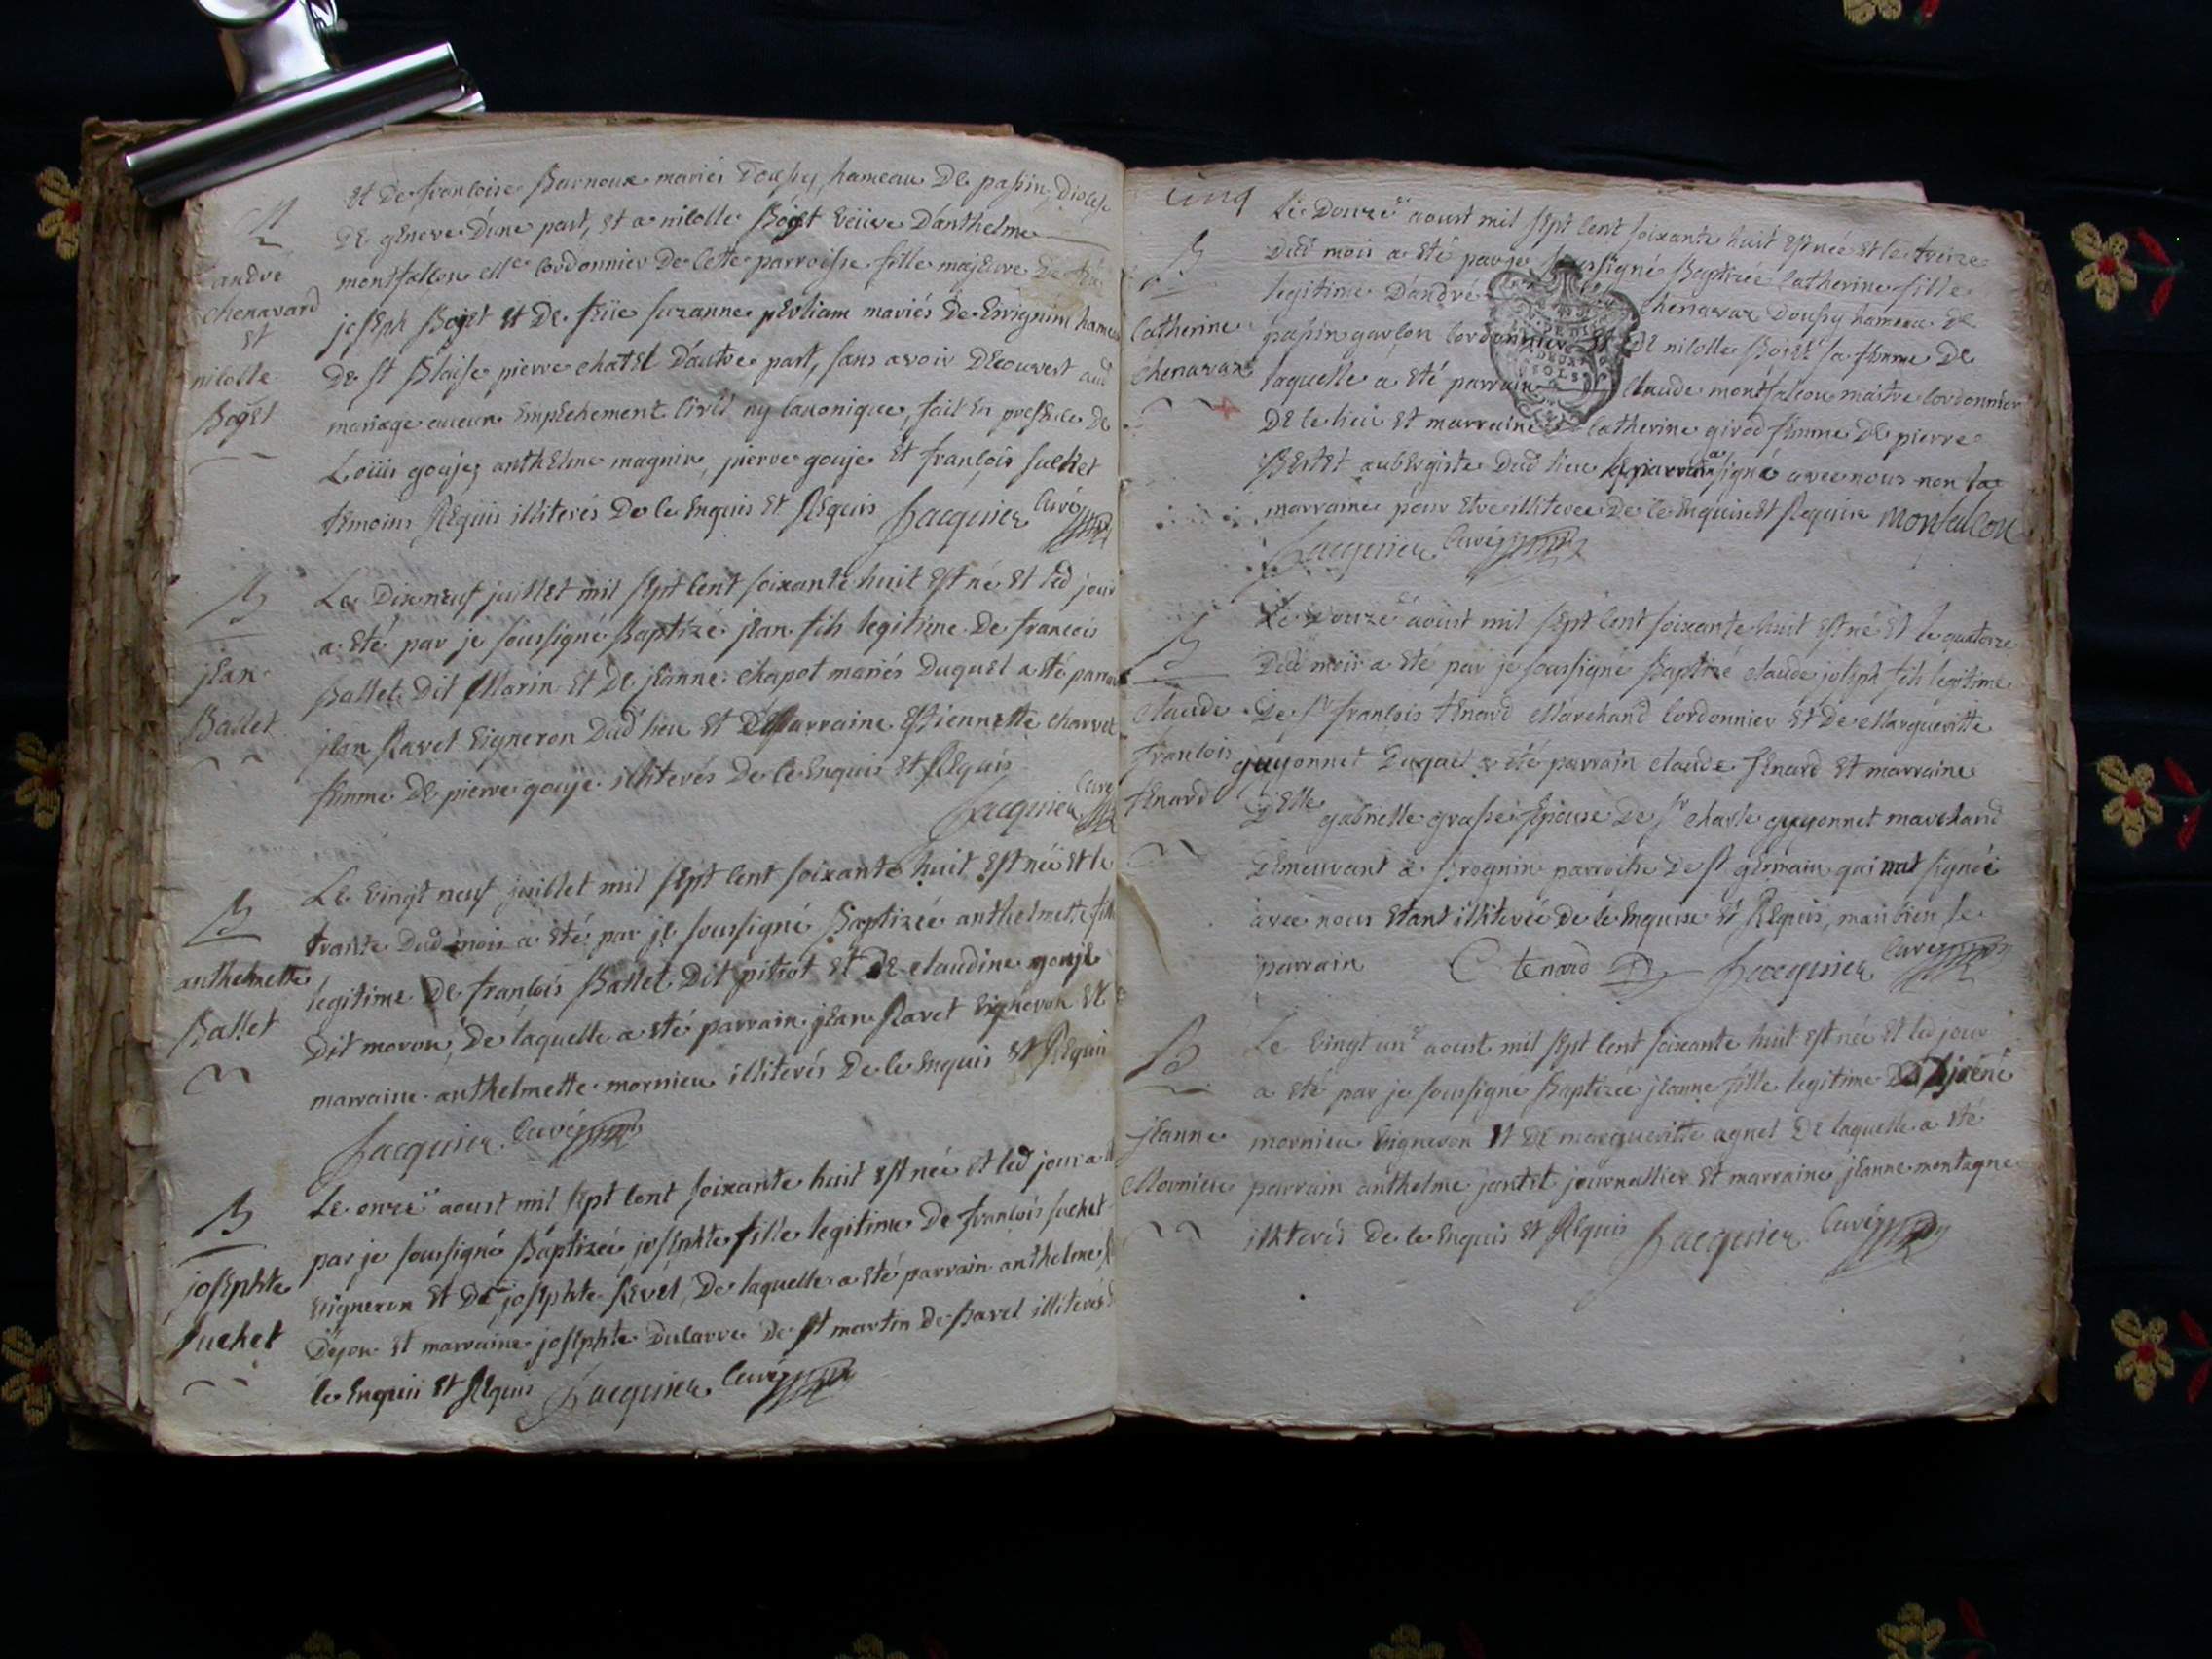 M
andré
chenavard
Et
nicolle
Boget
Et De francoise Barnoux mariés Doussy, hameau De passin, Diocese
De geneve D'une part, Et a nicolle Boget Veüve D'anthelme
montfalcon Me Cordonnier De Cette parroisse fille majeure De feu
joseph Boget Et De feüe suzanne mariés De hameau
De st Blaise pierre chatel D'autre part, sans avoir Decouvert aud
mariage aucun Empechement Civil ny Canonique, fait En presence De
Loüis gouje, anthelme magnin, pierre gouje Et francois suchet
temoins Requis illiterés De Ce Enquis Et Requis Jacquier Curé
B
jean
Ballet
Le Dix neuf juillet mil sept Cent soixante huit Est né Et led jour
a Eté par je soussigné Baptizé jean fils legitime De francois
Ballet Dit Marin Et De jeanne chapot mariés Duquel a Eté parrain
jean Ravet Vigneron Dud lieu Et De Marraine Estiennette charvet
femme De pierre gouje illiterés De Ce Enquis Et Requis
Jacquier Curé
B
anthelmette
Ballet
Le Vingt neuf juillet mil sept Cent soixante huit Est née Et le
trante Dud mois a Eté par je soussigné Baptizée anthelmette fille
legitime De francois Ballet Dit pitiot Et De claudine gouje
Dit moron, De laquelle a Eté parrain jean Ravet Vigneron Et
marraine anthelmette mornieu illiterés De Ce Enquis Et Requis
Jacquier Curé
B
josephte
suchet
Le onze aoust mil sept Cent soixante huit Est née Et led jour a Eté
par je soussigné Baptizée josephte fille legitime De francois suchet
Vigneron Et De josephte Revel, De laquelle a Eté parrain anthelme
Dejou Et marraine josephte Ducarre De st martin De Bavel illiterés
Ce Enquis Et Requis Jacquier Curé
Cinq
B
Catherine
chenavaz
Le Douze aoust mil sept Cent soixante huit Est née Et le treize
Dud mois a Eté par je soussigné Baptizée Catherine fille
legitime D'andré chenavaz Doussy hameau De
passin garcon Cordonnier Et De nicolle Boget sa femme De
laquelle a Eté parrain claude montfalcon maitre Cordonnier
De Ce lieu Et marraine Catherine girod femme De pierre
Bertet aubergiste Dud lieu le parrain a signé avec nous non la
marraine pour Etre illiteree De Ce Enquise Et Requise Monfalcon
Jacquier Curé
B
claude
francois
tenard
Le Douze aoust mil sept Cent soixante huit Est né Et le quatorze
Dud mois a Eté par je soussigné Baptizé claude joseph fils legitime
De sr francois tenard Marchand Cordonnier Et De Margueritte
guyonnet Duquel a Eté parrain claude tenard Et marraine
Delle gabrielle grasse Epouse De sr charle guyonnet marchand
Demeurant a Brognin parroisse De st germain qui nat signée
avec nous Etant illiterée De Ce Enquise Et Requis, mais bien le
parrain C tenard Jacquier Curé
B
jeanne
Mornieu
Le Vingt un aoust mil sept Cent soixante huit Est née Et led jour
a Eté par je soussigné Baptizée jeanne fille legitime De
mornieu Vigneron Et De margueritte agnel De laquelle a Eté
parrain anthelme jantet journallier Et marraine jeanne montagne
illiterés De Ce Enquis Et Requis Jacquier Curé